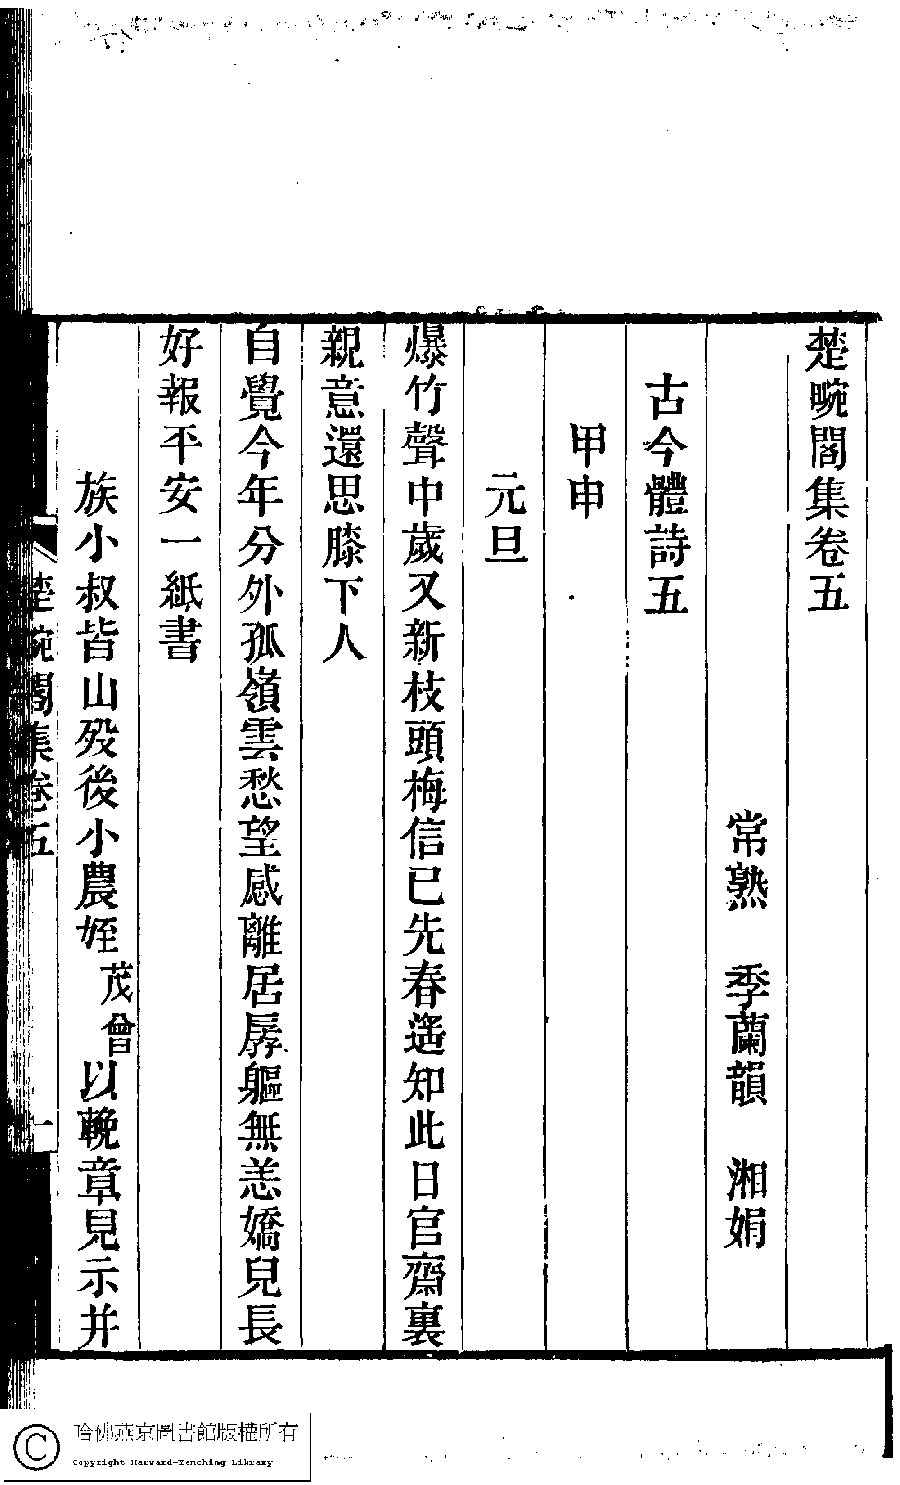 楚畹閣集卷五
常熟　季蘭韻　湘娟
古今體詩五
甲申
元旦
爆竹聲中歲又新枝頭梅信已先春遙知此日官齋裏
親意還思膝下人
自覺今年分外孤嶺雲愁望感離居孱軀無恙嬌兒長
好報平安一紙書
族小叔皆山歿後小農姪茂曾以輓章見示并
楚畹閣集卷五
一
哈佛燕京圖書館版權所有
Copyright Harvard-Yenching Library